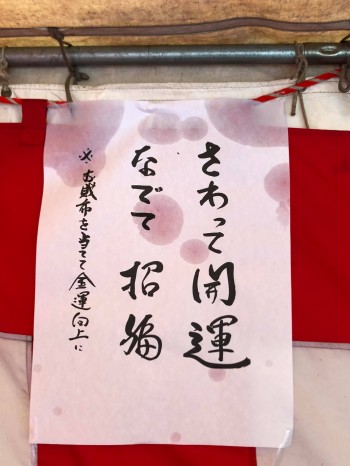 さわって開運
なでて招福
※お財布を当てて金運向上に